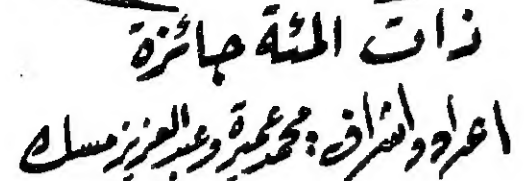 ذات المئة جائزة
اعداد واشراف : محمد عميرة وعبد العزيز مسك